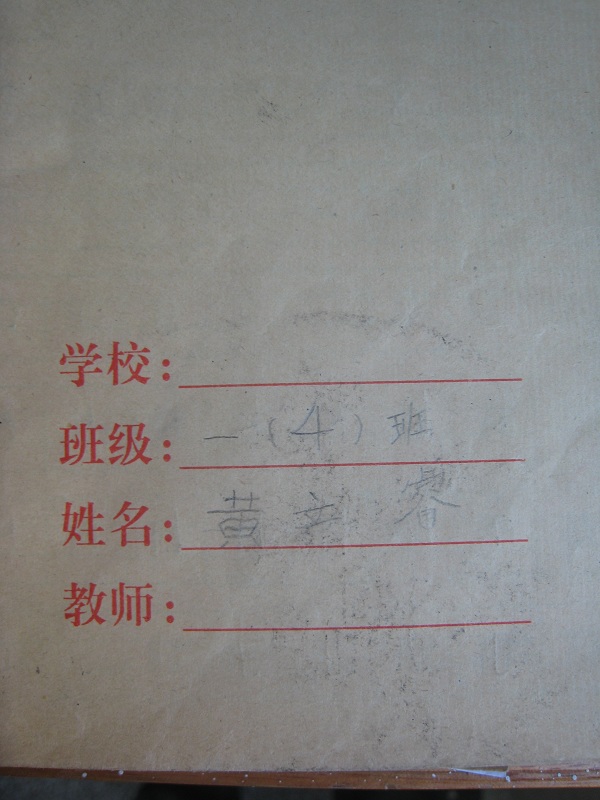 学校：
班级：一（4）班
姓名：黄 睿
教师：